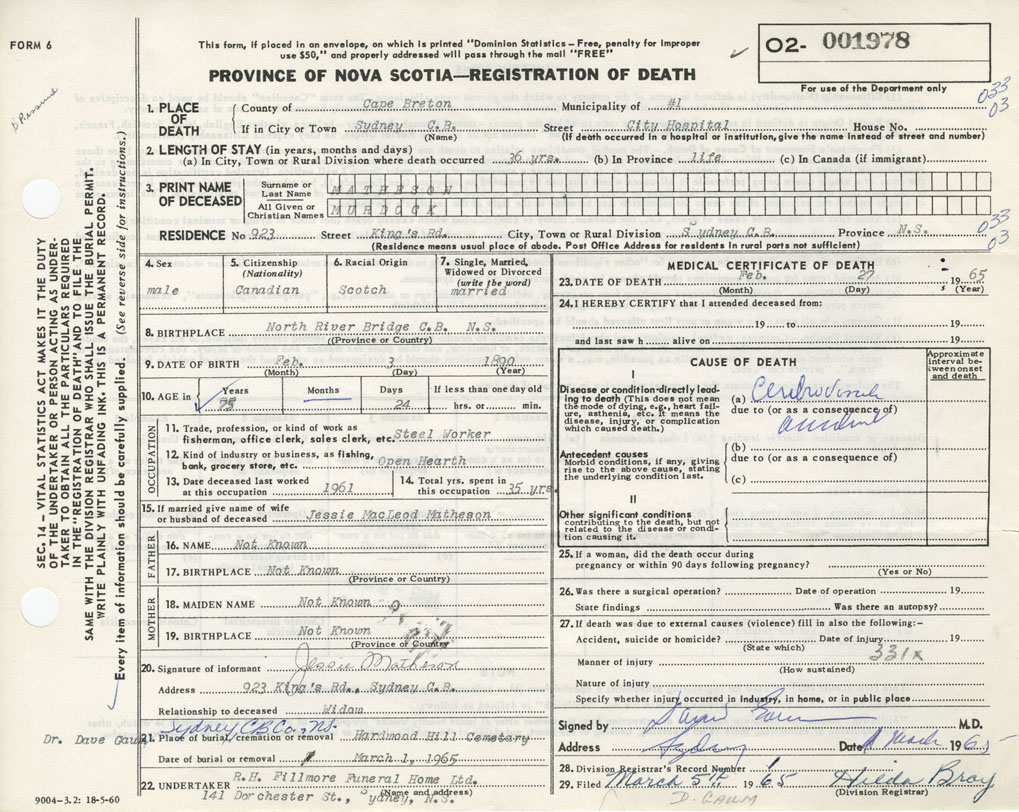 FORM 6
This form, if placed in an envelope, on which is printed "Dominion Statistics – Free, penalty for improper
use $50," and properly addressed will pass through the mail "FREE"
O2- 001978
PROVINCE OF NOVA SCOTIA—REGISTRATION OF DEATH
For use of the Department only
033
03
1. PLACE OF DEATH
County of Cape Breton Municipality of #1
If in City or Town Sydney C.B. Street City Hospital House No.
(Name) (If death occurred in a hospital or institution, give the name instead of street and number)
2. LENGTH OF STAY (in years, months and days)
(a) In City, Town or Rural Division where death occurred 36 yrs. (b) In Province life (c) In Canada (if immigrant)
3. PRINT NAME OF DECEASED
Surname or Last Name MATHESON
All Given or Christian Names MURDOCK
033
03
RESIDENCE No 923 Street King's Rd. City, Town or Rural Division Sydney C.B. Province N.S.
(Residence means usual place of abode. Post Office Address for residents in rural parts not sufficient)
4. Sex
male
5. Citizenship
(Nationality)
Canadian
6. Racial Origin
Scotch
7. Single, Married,
Widowed or Divorced
(write the word)
married
8. BIRTHPLACE North River Bridge C.B. N.S.
((Province or Country)
9. DATE OF BIRTH Feb. 3 1890
(Month) (Day) (Year)
10. AGE in
Years
75
Months
Days
24
If less than one day old
hrs. or min.
OCCUPATION
11. Trade, profession, or kind of work as
fisherman, office clerk, sales clerk, etc. Steel Worker
12. Kind of industry or business, as fishing,
bank, grocery store, etc. Open Hearth
13. Date deceased last worked
at this occupation 1961
14. Total yrs. spent in
this occupation 35 yrs.
15. If married give name of wife
or husband of deceased Jessie MacLeod Matheson
FATHER
16. NAME Not Known
17. BIRTHPLACE Not Known
(Province or Country)
MOTHER
18. MAIDEN NAME Not Known
19. BIRTHPLACE Not Known
(Province or Country)
20. Signature of informant Jessie Matheson
Address 923 King's Rd., Sydney C.B.
Relationship to deceased Widow
Sydney C.B. Co., N.S.
21. Place of burial, cremation or removal Hardmond Hill Cemetary
Date of burial or removal March 1, 1965
22. UNDERTAKER R.H. Fillmore Funeral Home Ltd.
(Name and address)
141 Dorchester St., Sydney, N.S.
MEDICAL CERTIFICATE OF DEATH
23. DATE OF DEATH Feb. 27 1965
(Month) (Day) (Year)
24. I HEREBY CERTIFY that I attended deceased from:
19 to 19
and last saw h alive on 19
CAUSE OF DEATH
Approximate interval between onset and death
I
Disease or condition directly leading to death (This does not mean
the mode of dying, e.g., heart failure, asthenia, etc. It means the
disease, injury, or complication
which caused death.)
(a) Cerebrovascular
due to (or as a consequence of)
accident
Antecedent causes
Morbid conditions, if any, giving
rise to the above cause, stating
the underlying condition last.
(b)
due to (or as a consequence of)
(c)
II
Other significant conditions
contributing to the death, but not
related to the disease or condition causing it.
25. If a woman, did the death occur during
pregnancy or within 90 days following pregnancy?
(Yes or No)
26. Was there a surgical operation? Date of operation 19
State findings Was there an autopsy?
27. If death was due to external causes (violence) fill in also the following:-
Accident, suicide or homicide? Date of injury 19
(State which)
331x
Manner of injury
(How sustained)
Nature of injury
Specify whether injury occurred in industry, in home, or in public place
Signed by M.D.
Address Sydney Date 1 March 1965
28. Division Registrar's Record Number
29. Filed March 5th 1965 Hilda Bray
(Division Registrar)
D. GAUM
SEC. 14 – VITAL STATISTICS ACT MAKES IT THE DUTY
OF THE UNDERTAKER OR PERSON ACTING AS UNDER-
TAKER TO OBTAIN ALL THE PARTICULARS REQUIRED
IN THE "REGISTRATION OF DEATH" AND TO FILE THE
SAME WITH THE DIVISION REGISTRAR WHO SHALL ISSUE THE BURIAL PERMIT.
WRITE PLAINLY WITH UNFADING INK. THIS IS A PERMANENT RECORD.
Every item of information should be carefully supplied. (See reverse side for instructions.)
Dr. Dave Gaum
9004-3.2: 18-5-60